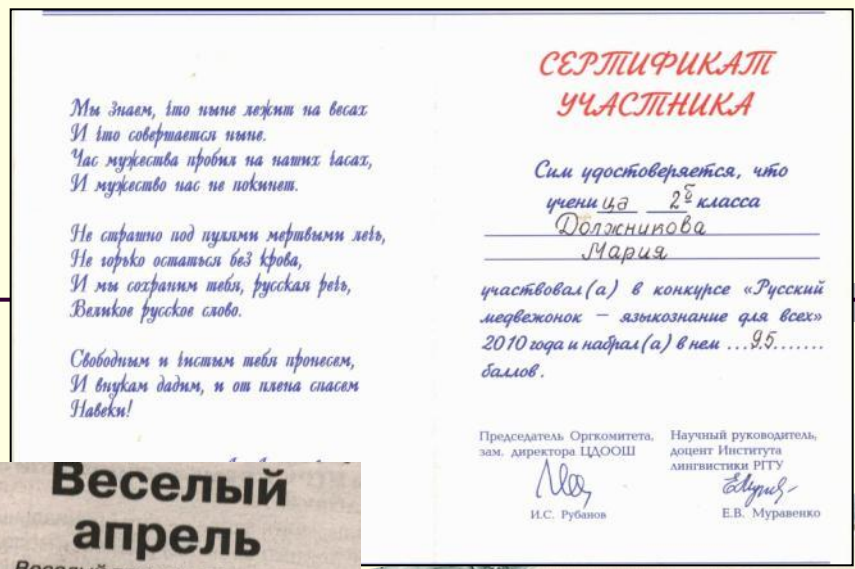 Мы знаем, что ныне лежит на весах
И что совершается ныне.
Час мужества пробил на наших часах,
И мужество нас не покинет.
Не страшно под пулями мертвыми лечь,
Не горько остаться без крова,
И мы сохраним тебя, русская речь,
Великое русское слово.
Свободным и чистым тебя пронесем,
И внукам дадим, и от плена спасем
Навеки!
СЕРТИФИКАТ
УЧАСТНИКА
Сим удостоверяется, что
учени ца 2б класса
Должникова
Мария
участвовал(а) в конкурсе «Русский
медвежонок – языкознание для всех»
2010 года и набрал(а) в нем ...95.......
баллов.
Председатель Оргкомитета,
зам. директора ЦДООШ
И.С. Рубанов
Научный руководитель,
доцент Института
лингвистики РГГУ
Е.В. Муравенко
Веселый
апрель